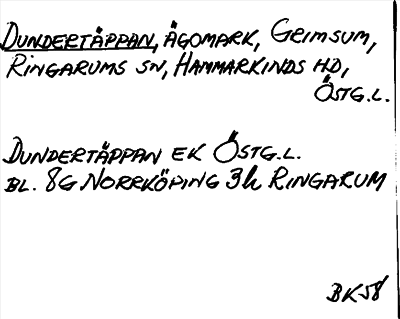 DUNDERTÄPPAN, ÄGOMARK, GRIMSUM,
RINGARUMS SN, HAMMARKINDS HD,
ÖSTG.L.
DUNDERTÄPPAN EK ÖSTG.L.
BL. 8G NORRKÖPING 3h RINGARUM
BK58